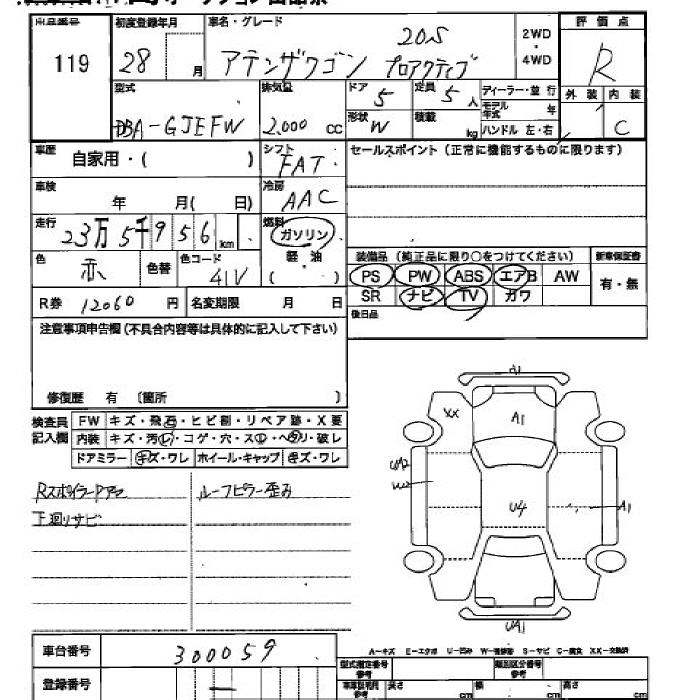 出品番号 初度登録年月 車名・グレード 評価点
119 28 月 アテンザワゴン 20S プロアクティブ 2WD・4WD R
型式 排気量 ドア 5 定員 5人 ディーラー・並行 外装 内装
DBA-GJEFW 2.000 cc 形状 W 積載 kg モデル年式 年 C
ハンドル 左・右
車歴 自家用・( ) シフト FAT セールスポイント(正常に機能するものに限ります)
車検 年 月( 日) 冷房 AAC
走行 23万5千956km 燃料 ガソリン
軽油
( )
色 赤 色替 色コード 41V 装備品(純正品に限り○をつけてください) 新車保証書
PS PW ABS エアB AW 有・無
R券 12060円 名変期限 月 日 SR ナビ TV カワ
後日品
注意事項申告欄(不具合内容等は具体的に記入して下さい)
修復歴 有 〔箇所 〕
検査員記入欄 FW キズ・飛石・ヒビ割・リペア跡・X要
内装 キズ・汚レ・コゲ・穴・スレ・ヘタリ・破レ
ドアミラー キズ・ワレ ホイール・キャップ キズ・ワレ
RスポイラーPアラ ルーフピラー歪み
下廻リサビ
XX A1
U4 A1
UA1
A-キズ E-エクボ U-凹み W-補修跡 S-サビ C-腐食 XX-交換済
車台番号 300059 型式指定番号 類別区分番号
登録番号 — 参考 長さ cm 幅 cm 高さ cm